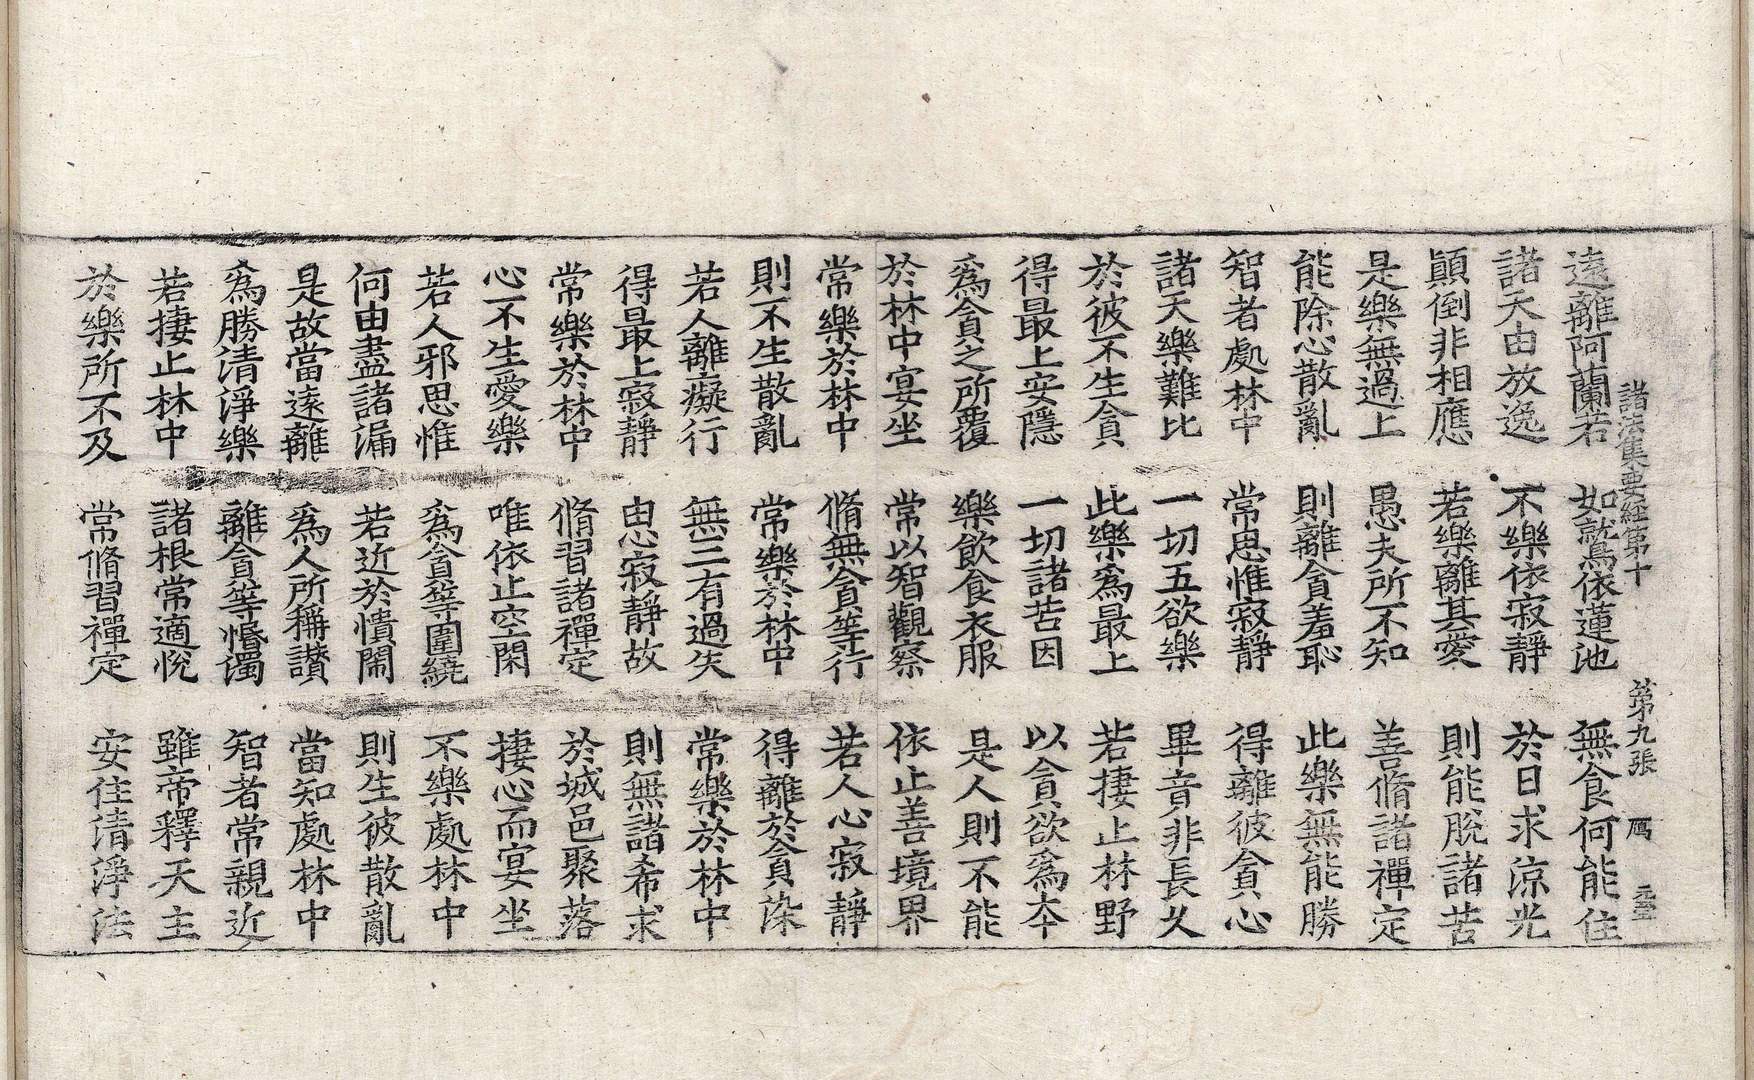 諸法集要經第十 第九張 鴈
遠離阿蘭若 如鷲依蓮池 無食何能住
諸天由放逸 不樂依寂靜 於日求涼光
顛倒非相應 若樂離其愛 則能脫諸苦
是樂無過上 愚夫所不知 善脩諸禪定
能除心散亂 則離貪羞恥 此樂無能勝
智者處林中 常思惟寂靜 得離彼貪心
諸天樂難比 一切五欲樂 畢竟非長久
於彼不生貪 此樂爲最上 若捿止林野
得最上安隱 一切諸苦因 以貪欲爲本
爲貪之所覆 樂飲食衣服 是人則不能
於林中宴坐 常以智觀察 依止善境界
常樂於林中 脩無貪等行 若人心寂靜
則不生散亂 常樂於林中 得離於貪染
若人離癡行 無三有過失 常樂於林中
得最上寂靜 由思寂靜故 則無諸希求
常樂於林中 脩習諸禪定 於城邑聚落
心不生愛樂 唯依止空閑 捿心而宴坐
若人邪思惟 爲貪等圍繞 不樂處林中
何由盡諸漏 若近於憒鬧 則生彼散亂
是故當遠離 爲人所稱讚 當知處林中
爲勝清淨樂 離貪等惛濁 智者常親近
若捿止林中 諸根常適悅 雖帝釋天主
於樂所不及 常脩習禪定 安住清淨法